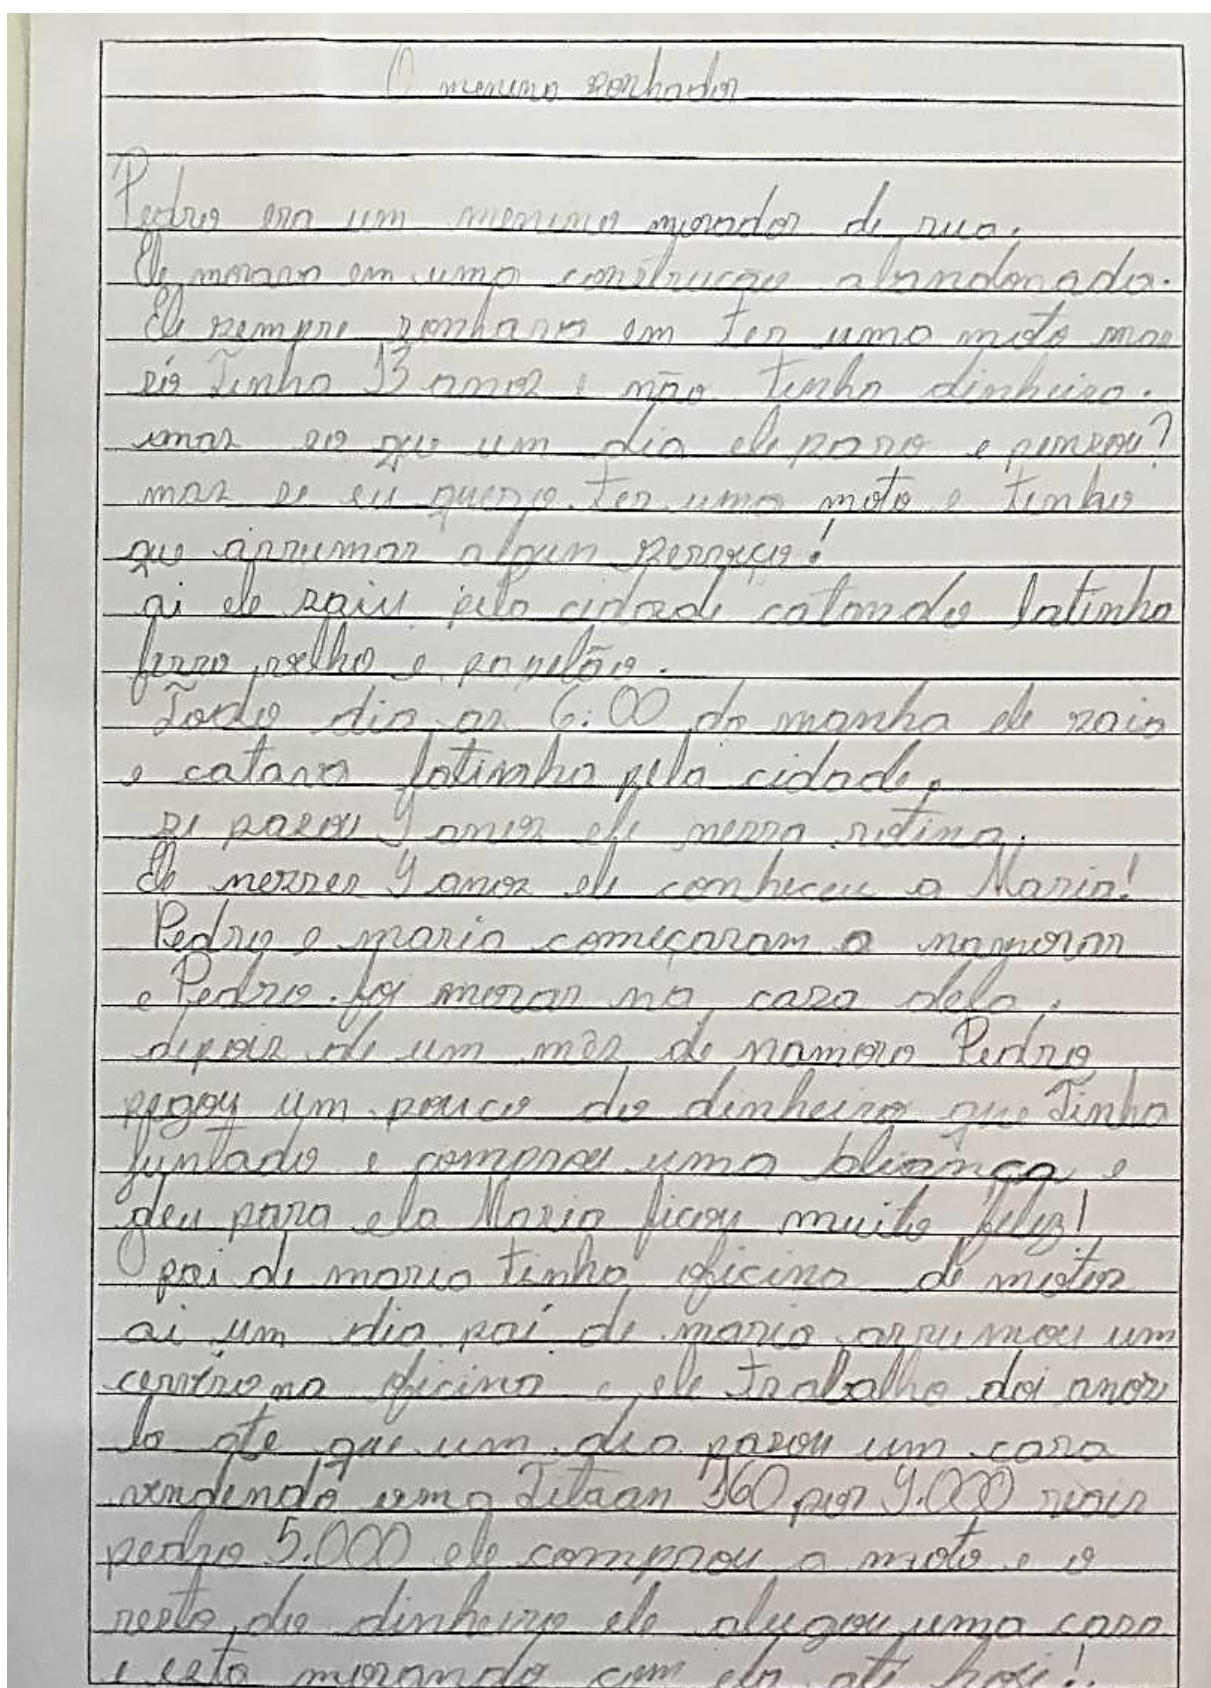 O menino sonhador
Pedro era um menino morador de rua.
Ele morava em uma construção abandonada.
Ele sempre sonhava em ter uma moto mas
só tinha 13 anos e não tinha dinheiro.
mas so que um dia ele paro e pensou?
mas se eu quero ter uma moto e tenho
que arrumar algun serviço!
ai ele saiu pela cidade catando latinha
ferro velho e papelão.
Todo dia as 6:00 da manha ele saia
e catava latinha pela cidade.
se pasou 4 anos ele nessa rotina.
E nesses 4 anos ele conheceu a Maria!
Pedro e maria começaram a namorar
e Pedro foi morar na casa dela.
depois de um mês de namoro Pedro
pegou um pouco do dinheiro que tinha
juntado e comprou uma aliança e
deu para ela Maria ficou muito feliz!
O pai de maria tinha oficina de motos
ai um dia pai de maria arrumou um
na oficina e ele trabalho doi anos
la ate que um dia pasou um cara
vendendo uma Titaan 160 por 4.000 reais
pedro 5.000 ele comprou a moto e o
resto do dinheiro ele alugou uma casa
e esta morando com ela até hoje!